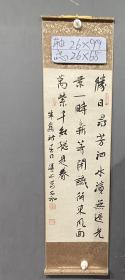 轴26×99
画26×65
勝日尋芳泗水濱無邊光
景一時新等閒識得東風面
萬紫千紅總是春
朱熹詩春日